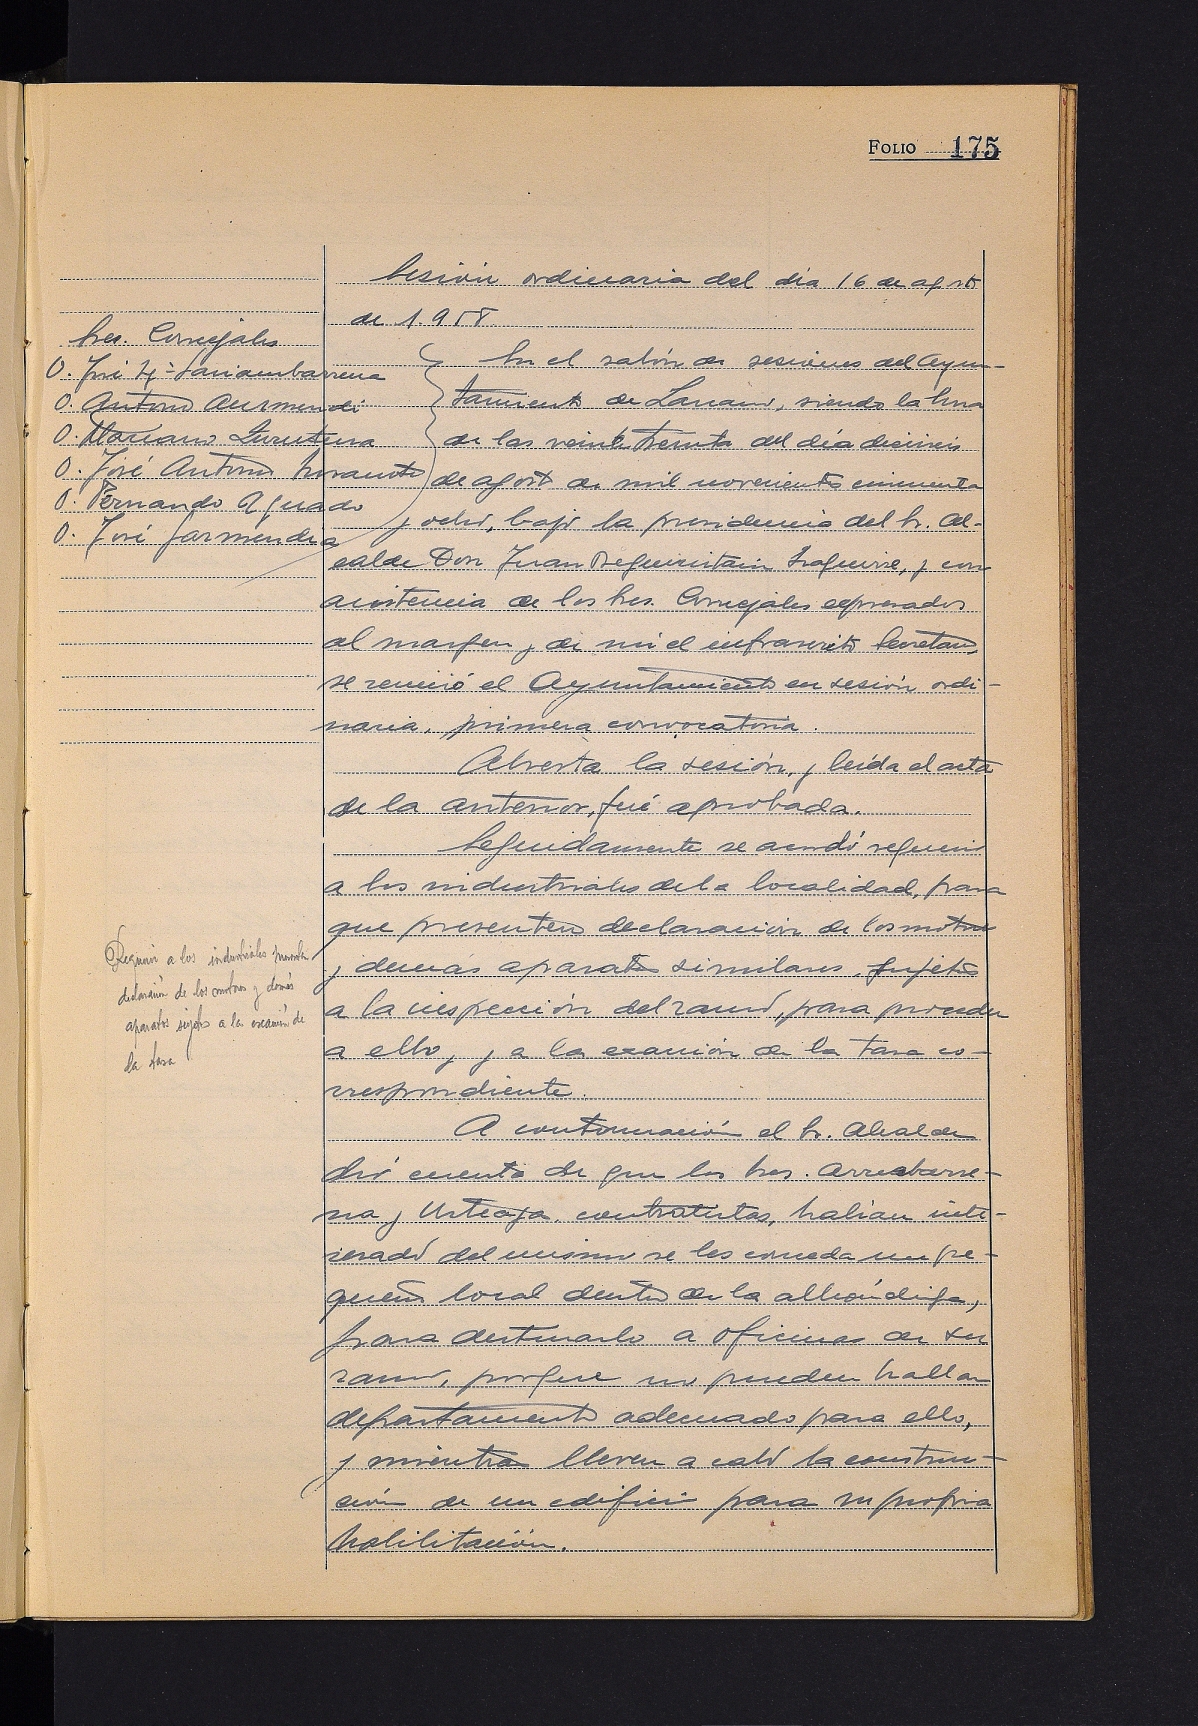 Folio 175
Sesión ordinaria del día 16 de agosto
de 1.958
Sres. Concejales
D. José Mª Lanambarrena
D. Antonio Aurmendi
D. Mariano Zurutuza
D. José Antonio
D. Fernando Aguado
D. José Garmendia
En el salón de sesiones del Ayun-
tamiento de Lazcano, siendo la hora
de las veinte treinta del día dieciseis
de agosto de mil novecientos cincuenta
y ocho, bajo la presidencia del Sr. Al-
calde Don Juan Beguiristain Izaguirre, y con
asistencia de los Sres. Concejales expresados
al margen y de mi el infrascrito Secretario,
se reunió el Ayuntamiento en sesión ordi-
naria, primera convocatoria.
Abierta la sesión, y leída el acta
de la anterior, fué aprobada.
Seguidamente se acordó requerir
a los industriales de la localidad, para
que presenten declaración de los motores
y demás aparatos similares sujetos
a la inspección del ramo, para proceder
a ello, y a la exacción de la tasa co-
rrespondiente.
Requerir a los industriales presenten
declaración de los motores y demás
aparatos sujetos a la exacción de
la tasa
A continuación el Sr. Alcalde
dió cuenta de que los Sres. Arruabarre-
na y Urteaga, contratistas, habían inte-
resado del mismo se les conceda un pe-
queño local dentro de la alhóndiga,
para destinarlo a oficinas de su
ramo, porque no pueden hallar
departamento adecuado para ello,
y mientras lleven a cabo la construc-
ción de un edificio para su propia
habilitación.